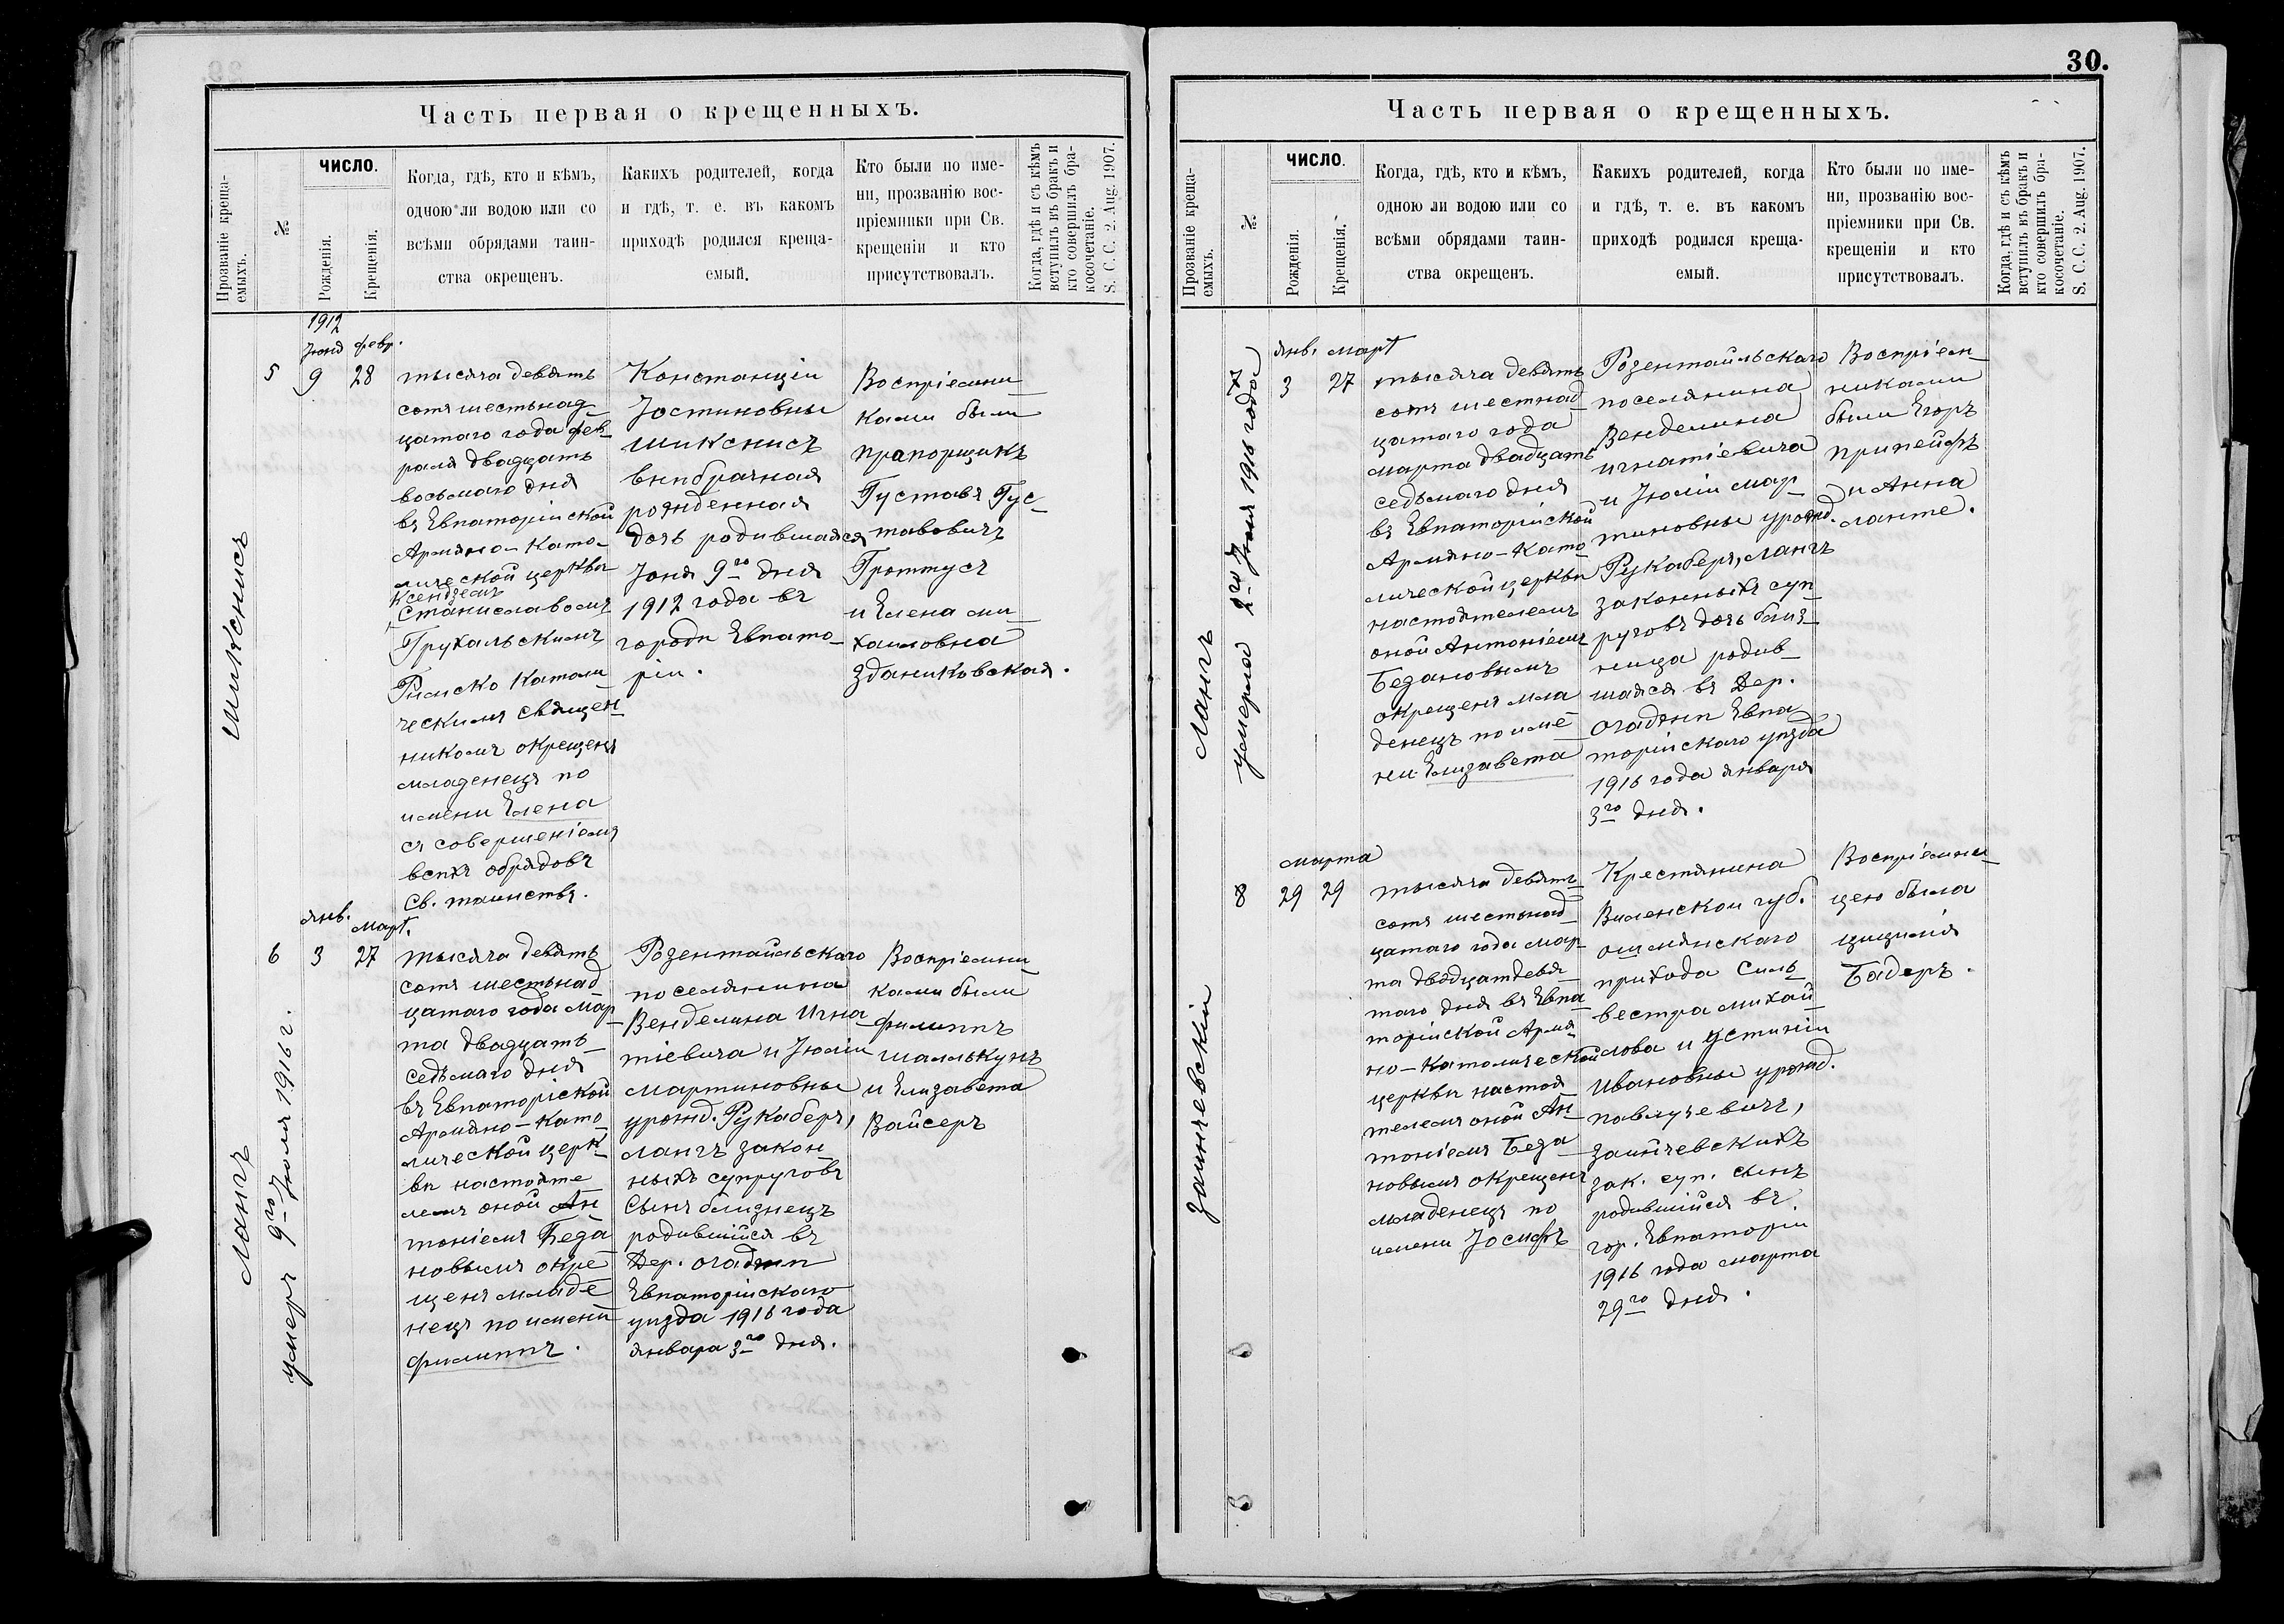 Часть первая о крещенныхъ.
Прозваніе креща-
емыхъ.
№
ЧИСЛО.
Рожденія.
Крещенія.
Когда, гдѣ, кто и кѣмъ,
одною ли водою или со
всѣми обрядами таин-
ства окрещенъ.
Какихъ родителей, когда
и гдѣ, т. е. въ какомъ
приходѣ родился креща-
емый.
Кто были по име-
ни, прозванію вос-
пріемники при Св.
крещеніи и кто
присутствовалъ.
Когда, гдѣ и съ кѣмъ
вступилъ въ бракъ и
кто совершилъ бра-
косочетаніе.
S. C. C. 2. Aug. 1907.
Шикснисъ
5
1912
Іюня
9
февр.
28
тысяча девять
сотъ шестьнад
цатаго года фев
раля двадцать
восьмаго дня
въ Евпаторійской
Армяно-Като-
лической церкви
Ксендземъ
Станиславомъ
Грухальскимъ
Римско Католи
ческимъ священ
никомъ окрещенъ
младенецъ по
имени Елена
съ совершеніемъ
всѣхъ обрядовъ
Св. таинства.
Констанціи
Іостиновны
Шикснисъ
внѣбрачная
рожденная
дочь родившаяся
Іюня 9го дня
1912 года въ
городѣ Евпато-
ріи.
Воспріемни
ками были
прапорщикъ
Густавъ Гус-
тавовичъ
Гроттусъ
и Елена Ми
хайловна
Здани­ковская.
Лангъ
умеръ 9го Іюля 1916 г.
6
янв.
3
март.
27
тысяча девять
сотъ шестьнад
цатаго года Мар
та двадцать
седьмаго дня
въ Евпаторіской
Армяно-Като
лической церк
ви настояте
лемъ оной Ан
тоніемъ Беза
новымъ окре
щенъ младе
нецъ по имени
Филиппъ.
Розентальскаго
поселянина
Венделина Игна
тіевича и Юліи
Мартиновны
урожд. Рукаберъ,
Лангъ закон
ныхъ супруговъ
Сынъ близнецъ
родившійся въ
Дер. Огадѣнѣ
Евпаторійскаго
уѣзда 1916 года
января 3го дня.
Воспріемни
ками были
Филиппъ
Шалькунъ
и Елизавета
Вайсеръ
30.
Часть первая о крещенныхъ.
Прозваніе креща-
емыхъ.
№
ЧИСЛО.
Рожденія.
Крещенія.
Когда, гдѣ, кто и кѣмъ,
одною ли водою или со
всѣми обрядами таин-
ства окрещенъ.
Какихъ родителей, когда
и гдѣ, т. е. въ какомъ
приходѣ родился креща-
емый.
Кто были по име-
ни, прозванію вос-
пріемники при Св.
крещеніи и кто
присутствовалъ.
Когда, гдѣ и съ кѣмъ
вступилъ въ бракъ и
кто совершилъ бра-
косочетаніе.
S. C. C. 2. Aug. 1907.
Лангъ
умерла 2го Іюля 1916 года
7
янв.
3
март
27
тысяча девять
сотъ шестнад
цатаго года
марта двадцать
седьмаго дня
въ Евпаторійской
Армяно-Като
лической церкви
настоятелемъ
оной Антоніемъ
Безановымъ
окрещенъ мла
денецъ по име
ни Елизавета
Розентальскаго
поселянина
Венделина
Игнатіевича
и Юліи Мар
тиновны урожд.
Рукаберъ, Лангъ
законныхъ суп
руговъ дочь близ
ница родив
шаяся въ Дер.
Огадѣнѣ Евпа
торійскаго уѣзда
1916 года января
3го дня.
Воспріем
никами
были Егоръ
Припейфъ
и Анна
Ланте.
Заинчевскій
8
марта
29
29
тысяча девять
сотъ шестьнад
цатаго года мар
та двадцатдевя
таго дня въ Евпа
торійской Армя
но-Католической
церкви настоя
телемъ оной Ан
тоніемъ Беза
новымъ окрещенъ
младенецъ по
имени Іосифъ
Крестянина
Виленской губ.
Ошмянскаго
прихода Силь
вестра Михай
лова и Устиніи
Ивановны урожд.
Павлучевичъ,
Заинчевскихъ
зак. суп. сынъ
родившійся въ
гор. Евпаторіи
1916 года марта
29го дня.
Воспріемни
цею была
Цицилія
Бадеръ.